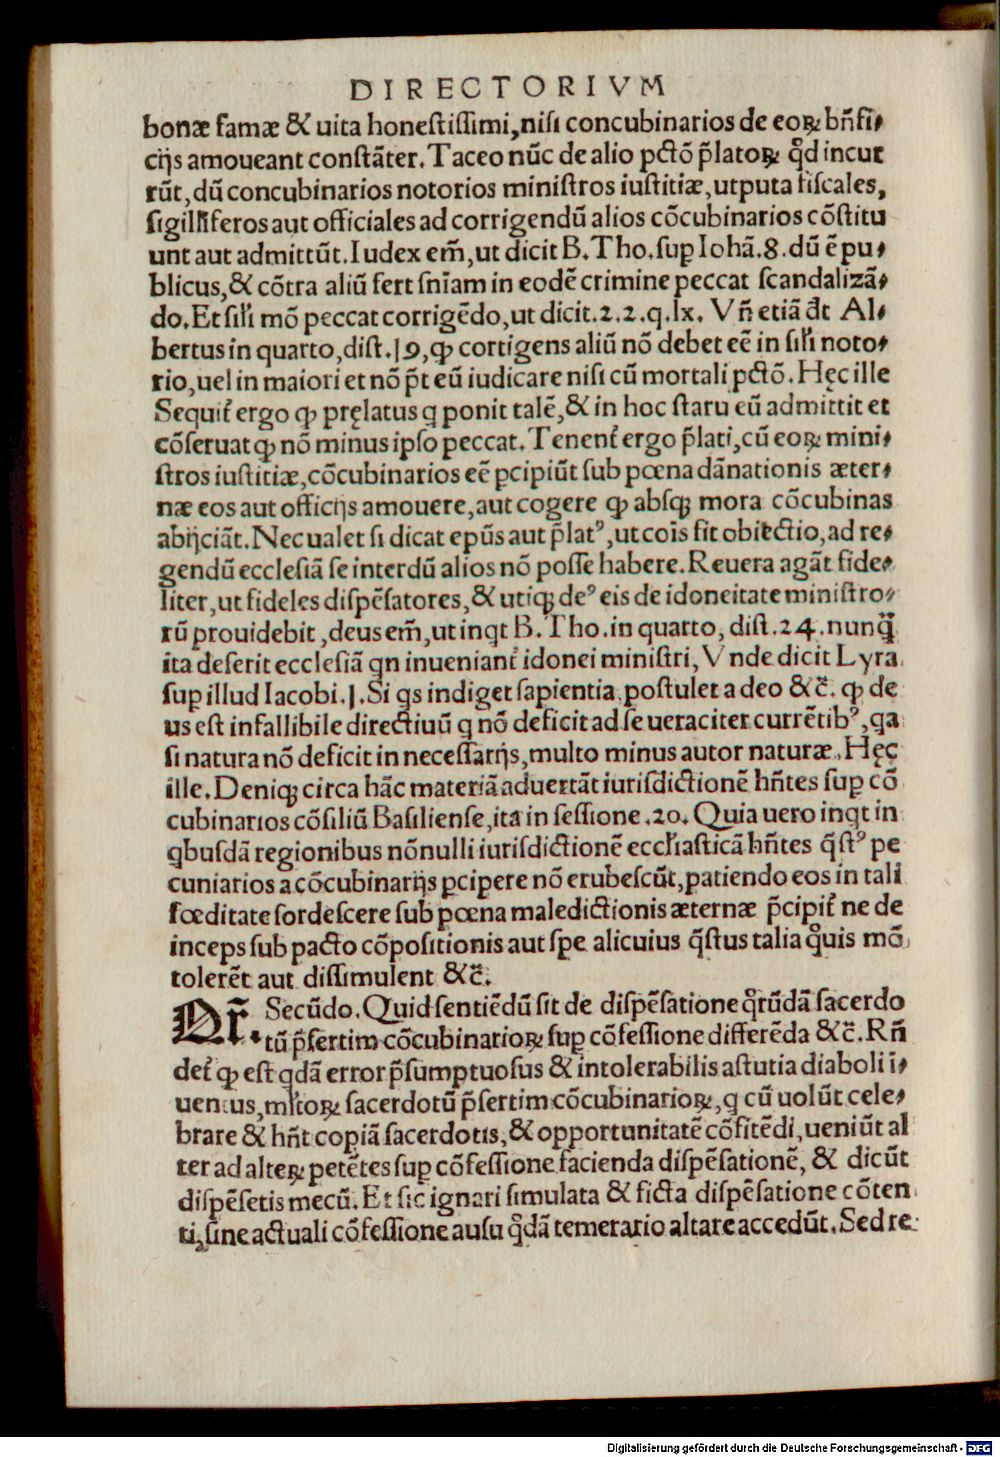 DIRECTORIVM
bonæ famæ & uita honestissimi, nisi concubinarios de eoꝝ bñfi-
cijs amoueant constãter. Taceo nũc de alio pctõ p̃latoꝝ qđ incur
rũt, dũ concubinarios notorios ministros iustitiæ, utputa fiscales,
sigilliferos aut officiales ad corrigendũ alios cõcubinarios cõstitu
unt aut admittũt. Iudex em̃, ut dicit B. Tho. suꝑ Iohã. 8. dũ ẽ pu-
blicus, & cõtra aliũ fert sñiam in eodẽ crimine peccat scandalizã-
do. Et sili mõ peccat corrigẽdo, ut dicit. 2. 2. q. lx. Vñ etiã đt Al-
bertus in quarto, dist. 19, ꝙ corrigens aliũ nõ debet eẽ in sili noto-
rio, uel in maiori et nõ p̃t eũ iudicare nisi cũ mortali pctõ. Hęc ille
Sequit̃ ergo ꝙ pręlatus q ponit talẽ, & in hoc staru eũ admittit et
cõseruat ꝙ nõ minus ipso peccat. Tenent̃ ergo p̃lati, cũ eoꝝ mini-
stros iustitiæ, cõcubinarios eẽ ꝑcipiũt sub pœna dãnationis æter-
næ eos aut officijs amouere, aut cogere ꝙ absqꝫ mora cõcubinas
abijciãt. Nec ualet si dicat ep̃us aut p̃latꝰ, ut cois fit obiectio, ad re-
gendũ ecclesiã se interdũ alios nõ posse habere. Reuera agãt fide-
liter, ut fideles dispẽsatores, & utiqꝫ deꝰ eis de idoneitate ministro-
rũ prouidebit, deus em̃, ut inqt B. Tho. in quarto, dist. 24. nunq̃
ita deserit ecclesiã qn inueniant̃ idonei ministri, Vnde dicit Lyra
sup illud Iacobi. 1. Si qs indiget sapientia, postulet a deo &c̃. ꝙ de
us est infallibile directiuũ q nõ deficit ad se ueraciter currẽtibꝰ, qa
si natura nõ deficit in necessarijs, multo minus autor naturæ. Hęc
ille. Deniqꝫ circa hãc materiã aduertãt iurisdictionẽ hñtes suꝑ cõ
cubinarios cõsiliũ Basiliense, ita in sessione .20. Quia uero inqt in
qbusdã regionibus nõnulli iurisdictionẽ eccłiasticã hñtes q̃stꝰ pe
cuniarios a cõcubinarijs ꝑcipere nõ erubescũt, patiendo eos in tali
fœditate sordescere sub pœna maledictionis æternæ p̃cipit̃ ne de
inceps sub pacto cõpositionis aut spe alicuius q̃stus talia quis mõ
tolerẽt aut dissimulent &c̃.
Nr̃. Secũdo. Quid sentiẽdũ sit de dispẽsatione qrũdã sacerdo
tũ p̃sertim cõcubinarioꝝ suꝑ cõfessione differẽda &c̃. Rñ
det̃ ꝙ est qdã error p̃sumptuosus & intolerabilis astutia diaboli ĩ-
uentus, mltoꝝ sacerdotũ p̃sertim cõcubinarioꝝ, q cũ uolũt cele-
brare & hñt copiã sacerdotis, & opportunitatẽ cõfitẽdi, ueniũt al
ter ad alteꝝ petẽtes suꝑ cõfessione facienda dispẽsationẽ, & dicũt
dispẽsetis mecũ. Et sic ignari simulata & ficta dispẽsatione cõten
ti, sine actuali cõfessione ausu qđã temerario altare accedũt. Sed re-
Digitalisierung gefördert durch die Deutsche Forschungsgemeinschaft - DFG